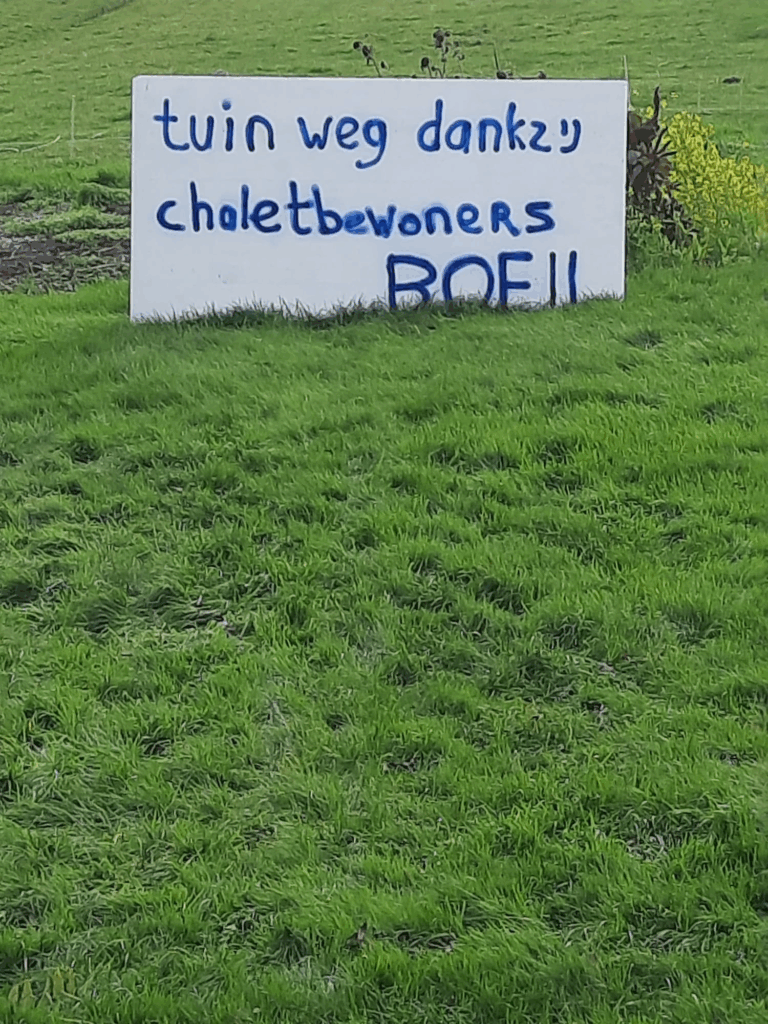 tuin weg dankzij
chaletbewoners
BOE!!